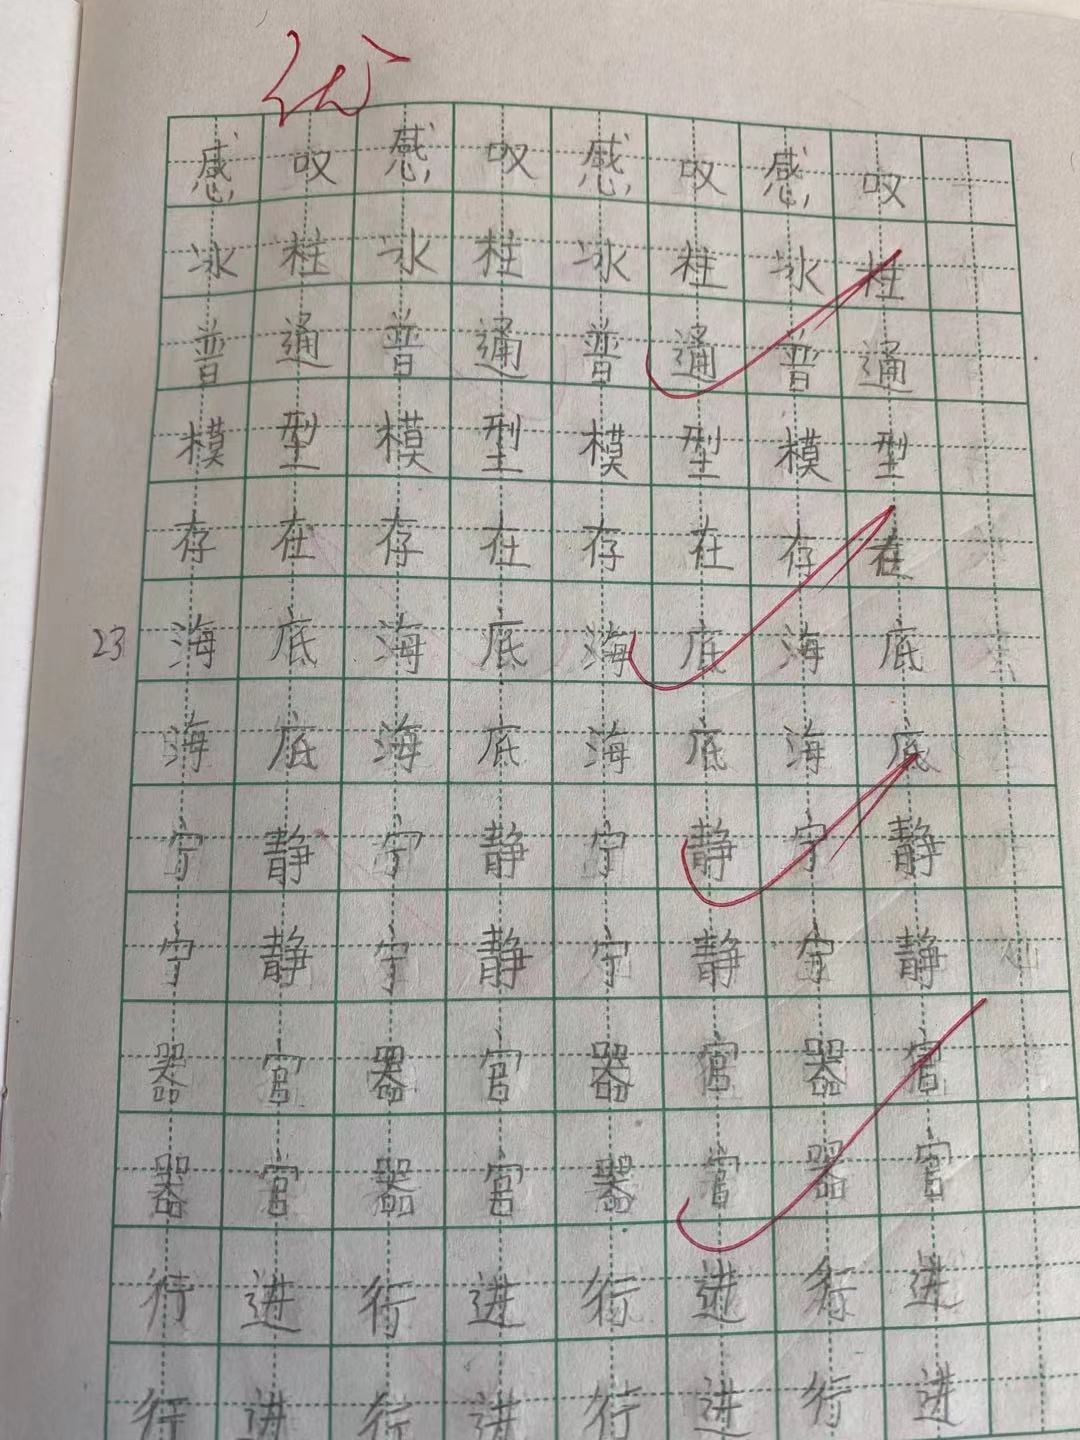 优
感叹感叹感叹感叹
冰柱冰柱冰柱冰柱
普通普通普通普通
模型模型模型模型
存在存在存在存在
23 海底海底海底海底
海底海底海底海底
宁静宁静宁静宁静
宁静宁静宁静宁静
器官器官器官器官
器官器官器官器官
行进行进行进行进
行进行进行进行进